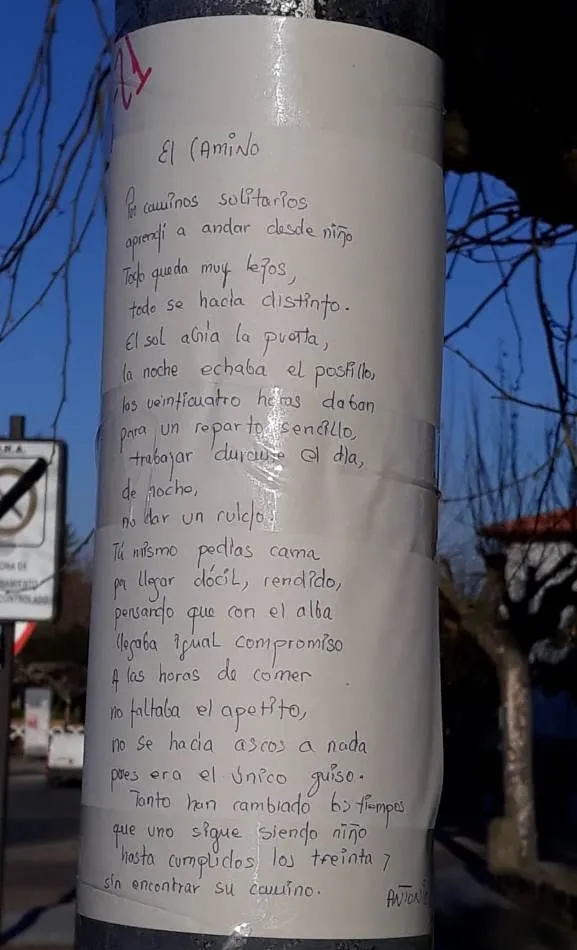 21
El CAMINO
Por caminos solitarios
aprendí a andar desde niño
Todo queda muy lejos,
todo se hacía distinto.
El sol abría la puerta,
la noche echaba el postillo,
las veinticuatro horas daban
para un reparto sencillo,
trabajar durante el día,
de noche,
no dar un ruido.
Tú mismo pedías cama
pa llgar dócil, rendido,
pensando que con el alba
llegaba igual compromiso
A las horas de comer
no faltaba el apetito,
no se hacía ascos a nada
pues era el único guiso.
Tanto han cambiado los tiempos
que uno sigue siendo niño
hasta cumplidos los treinta y
sin encontrar su camino.
ANTONIO